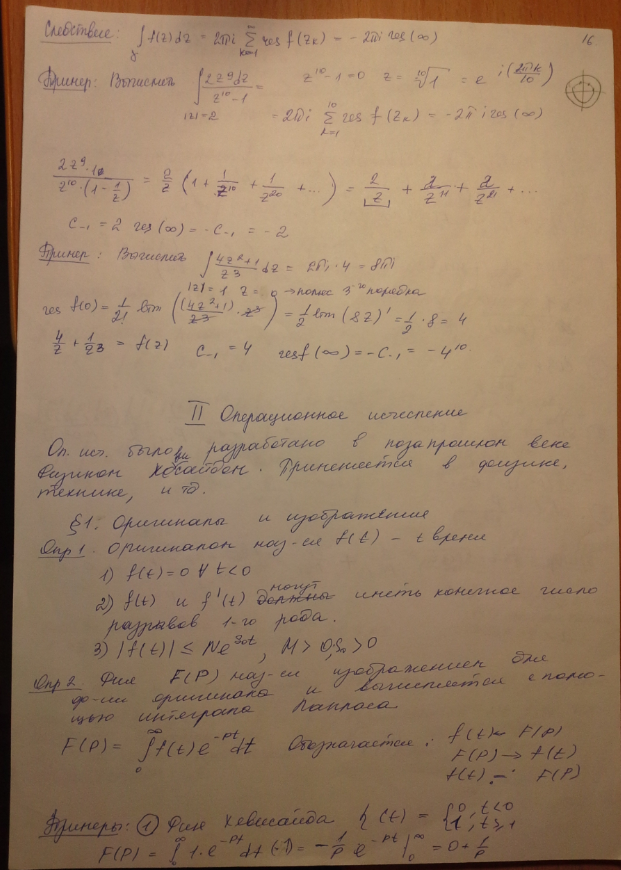 Следствие: ∫γ f(z)dz = 2πi ∑ᵏ⁼¹ⁿ res f(zₖ) = -2πi res(∞)
16
Пример: Вычислить ∫|z|=2 2z⁹dz/(z¹⁰-1) = z¹⁰-1=0 z = ¹⁰√1 = e^i(2πk/10)
= 2πi ∑ₖ₌₁¹⁰ res f(zₖ) = -2πi res(∞)
= 2/z (1 + 1/z¹⁰ + 1/z²⁰ + ...) = 2/z + 2/z¹¹ + 2/z²¹ + ...
C₋₁ = 2 res(∞) = -C₋₁ = -2
Пример: Вычислить ∫|z|=1 (4z²+1)/z³ dz = 2πi·4 = 8πi
z = 0 → полюс 3го порядка
res f(0) = 1/2! lim ((4z²+1)/z³ · z³)'' = 1/2 lim (8z)' = 1/2 · 8 = 4
4/z + 1/z³ = f(z) C₋₁ = 4 res f(∞) = -C₋₁ = -4
II Операционное исчисление
Оп. исч. было разработано в позапрошлом веке
физиком Хевисайдом. Применяется в физике,
технике, и тд.
§1. Оригиналы и изображение
Опр 1. Оригиналом наз-ся f(t) - t время
1) f(t)=0 ∀ t<0
2) f(t) и f'(t) могут иметь конечное число
разрывов 1-го рода.
3) |f(t)| ≤ Me^S₀t, M > 0, S₀ > 0
Опр 2. F(P) наз-ся изображением для
ф-ии оригинала и вычисляется с помо-
щью интеграла Лапласа
F(P) = ∫₀^∞ f(t) e^-pt dt Обозначается: f(t) ~ F(P)
F(P) → f(t)
f(t) ∸ F(P)
Примеры: ① Хевисайда (t) = {0, t<0
F(P) = ∫₀^∞ 1·e^-pt dt = -1/P e^-pt |₀^∞ = 0 + 1/P